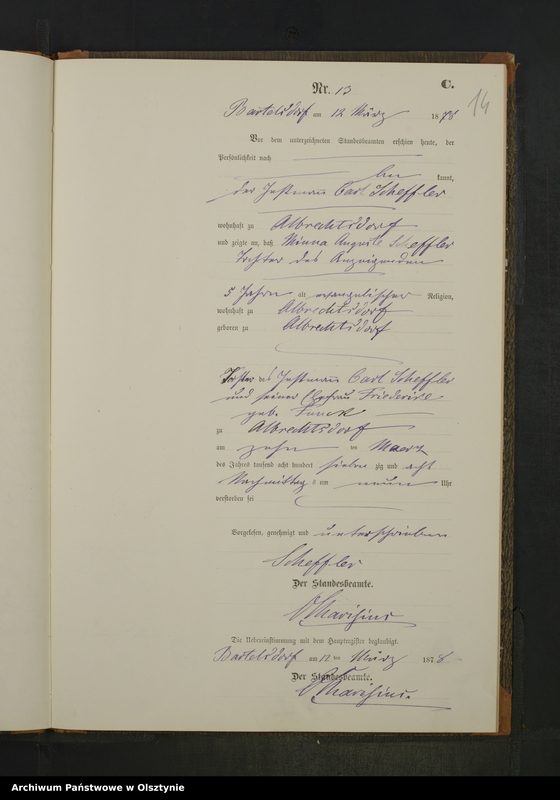 Nr. 13
C.
14
Bartelsdorf am 12 März 1878
Vor dem unterzeichneten Standesbeamten erschien heute, der
Persönlichkeit nach
kannt,
der Instmann Carl Scheffler
wohnhaft zu Albrechtsdorf
und zeigte an, daß Minna Auguste Scheffler
Tochter des Anzeigenden
5 Jahre alt evangelischer Religion,
wohnhaft zu Albrechtsdorf
geboren zu Albrechtsdorf
Tochter des Instmann Carl Scheffler
und seiner Ehefrau Friederike
geb. Funck
zu Albrechtsdorf
am zehn ten Maerz
des Jahres tausend acht hundert sieben zig und acht
Nachmittag s um neun Uhr
verstorben sei
Vorgelesen, genehmigt und unterschrieben
Scheffler
Der Standesbeamte.
Die Uebereinstimmung mit dem Hauptregister beglaubigt.
Bartelsdorf am 12 ten März 1878
Der Standesbeamte.
Archiwum Państwowe w Olsztynie